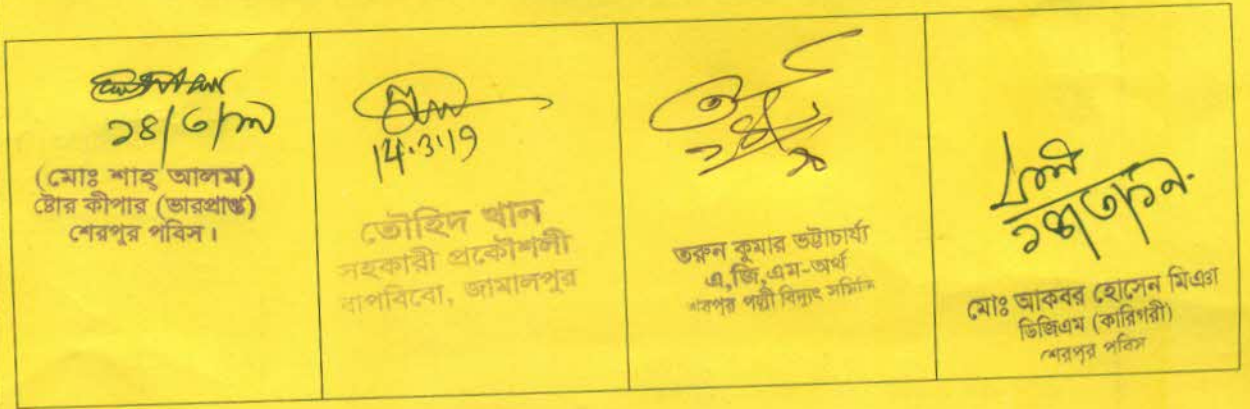 ১৪/৩/১৯
(মোঃ শাহ্ আলম)
ষ্টোর কীপার (ভারপ্রাপ্ত)
শেরপুর পবিস।
14.3.19
তৌহিদ খান
সহকারী প্রকৌশলী
বাপবিবো, জামালপুর
তরুন কুমার ভট্টাচার্য্য
এ,জি,এম-অর্থ
শেরপুর পল্লী বিদ্যুৎ সমিতি
১৪/৩/১৯
মোঃ আকবর হোসেন মিঞা
ডিজিএম (কারিগরী)
শেরপুর পবিস